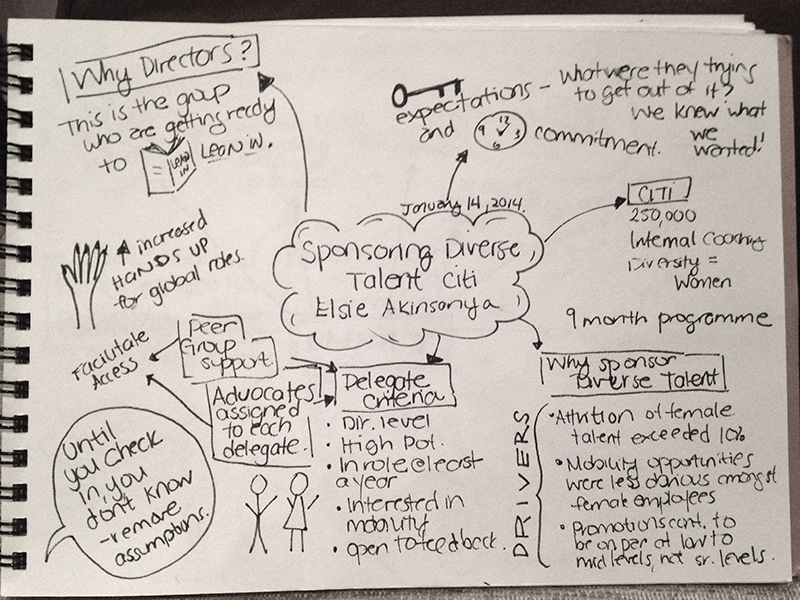 Why Directors?
This is the group
who are getting ready
to
LEAN IN
LEAN IN.
expectations - what were they trying
to get out of it?
we knew what
we
wanted!
and
12
9 3
6
commitment.
January 14, 2014.
Sponsoring Diverse
Talent Citi
Elsie Akinsanya
CITI
250,000
Internal Coaching
Diversity =
Women
9 month programme
increased
HANDS UP
for global roles.
Facilitate
Access
Peer
Group
support
Advocates
assigned
to each
delegate.
Until
you check
in, you
don't know
-remove
assumptions.
Delegate
Criteria
• Dir. level
• High Pot.
• In role @ least
a year
• Interested in
mobility
• open to feedback.
Why sponsor
Diverse Talent
DRIVERS
• Attrition of female
talent exceeded 10%
• Mobility opportunities
were less obvious amongst
female employees
• Promotions cont. to
be on par at low to
mid levels, not sr. levels.